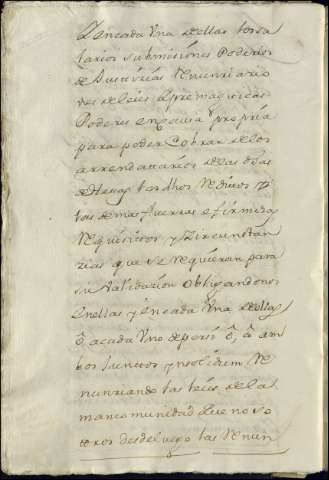 Y en cada Una de ellas todas a
tarios sumisiones Poderios
de Justicias Renunciacio
nes de leies y premagticas
Poderes en causa propria
para poder Cobrar de los
arrendatarios de las dhas
los dhos Reditos
to demas fuerzas e firmezas
Requisitos, y Circunstan
cias que se requieran para
su validacion obligandonos
En ellas y en cada Una de ellas
ô, a cada Uno de por si ô, â am
bos juntos y insolidum Re
nunciando las leies de la
mancomunidad que noso
tros desde luego las Renun